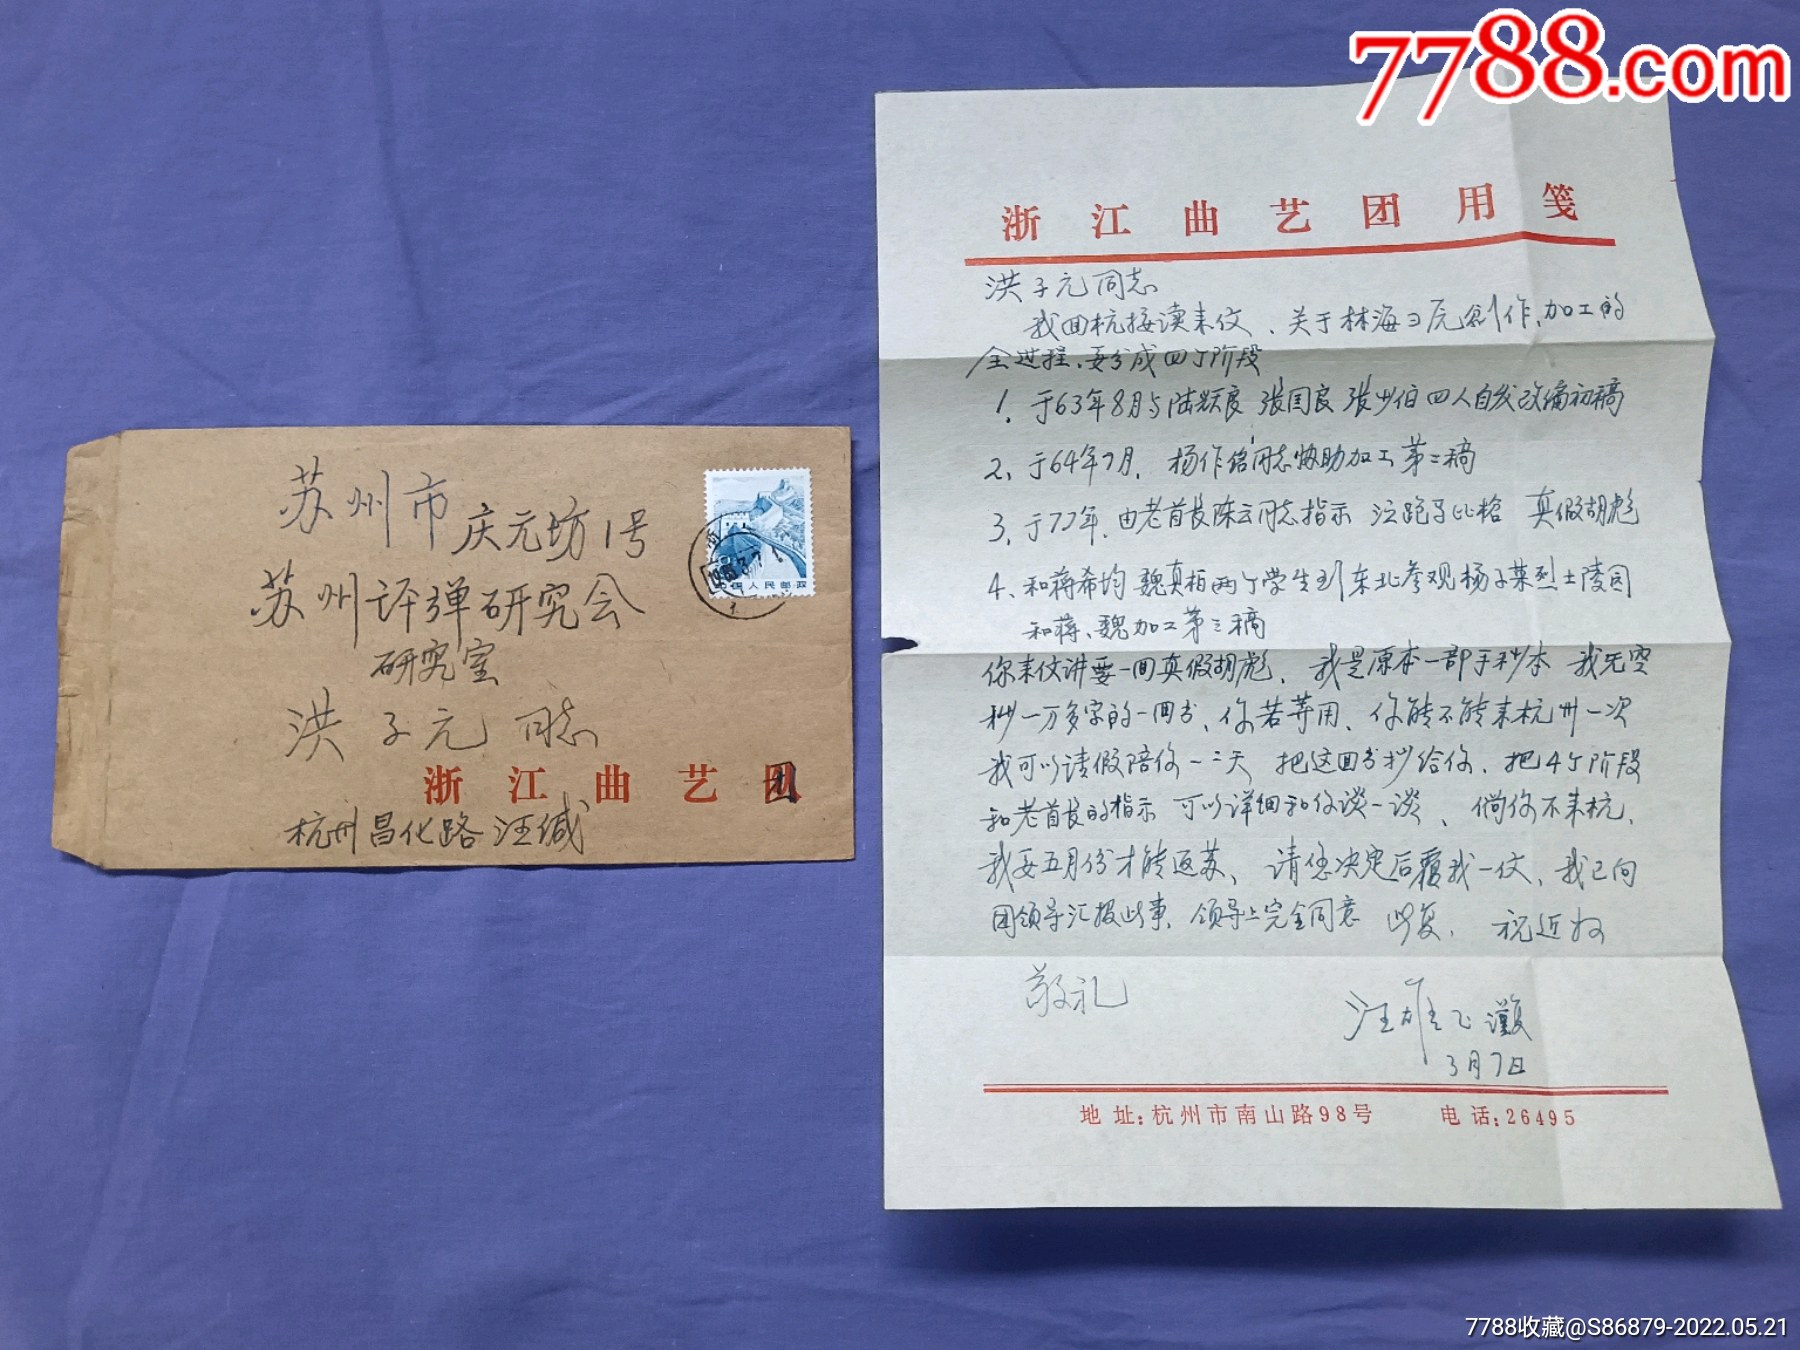 7788.com
苏州市庆元坊1号
苏州评弹研究会
研究室
洪子元同志
浙江曲艺团
杭州昌化路汪缄
中国人民邮政
浙江曲艺团用笺
洪子元同志
我回杭接读来仪、关于林海 创作、加工的
全过程、要分成四个阶段
1、于63年8月与陆耀良 张国良 张少伯四人自发改编初稿
2、于64年7月、杨作铭同志协助加工第二稿
3、于77年、由老首长陈云同志指示 泣跑马比枪 真假胡彪
4、和蒋希均 魏真柏两个学生到东北参观杨子荣烈士陵园
和蒋、魏加工第三稿
你来仪讲要一回真假胡彪、我是原本一部手秒本 我无空
秒一万多字的一回书、你若等用、你能不能来杭州一次
我可以请假陪你一二天 把这回书抄给你、把4个阶段
和老首长的指示 可以详细和你谈一谈、倘你不来杭、
我要五月份才能返苏、请您决定后覆我一仪、我已向
团领导汇报此事、领导上完全同意 此复、祝近好
敬礼
汪雄飞
3月7日
地址:杭州市南山路98号 电话:26495
7788收藏@S86879-2022.05.21